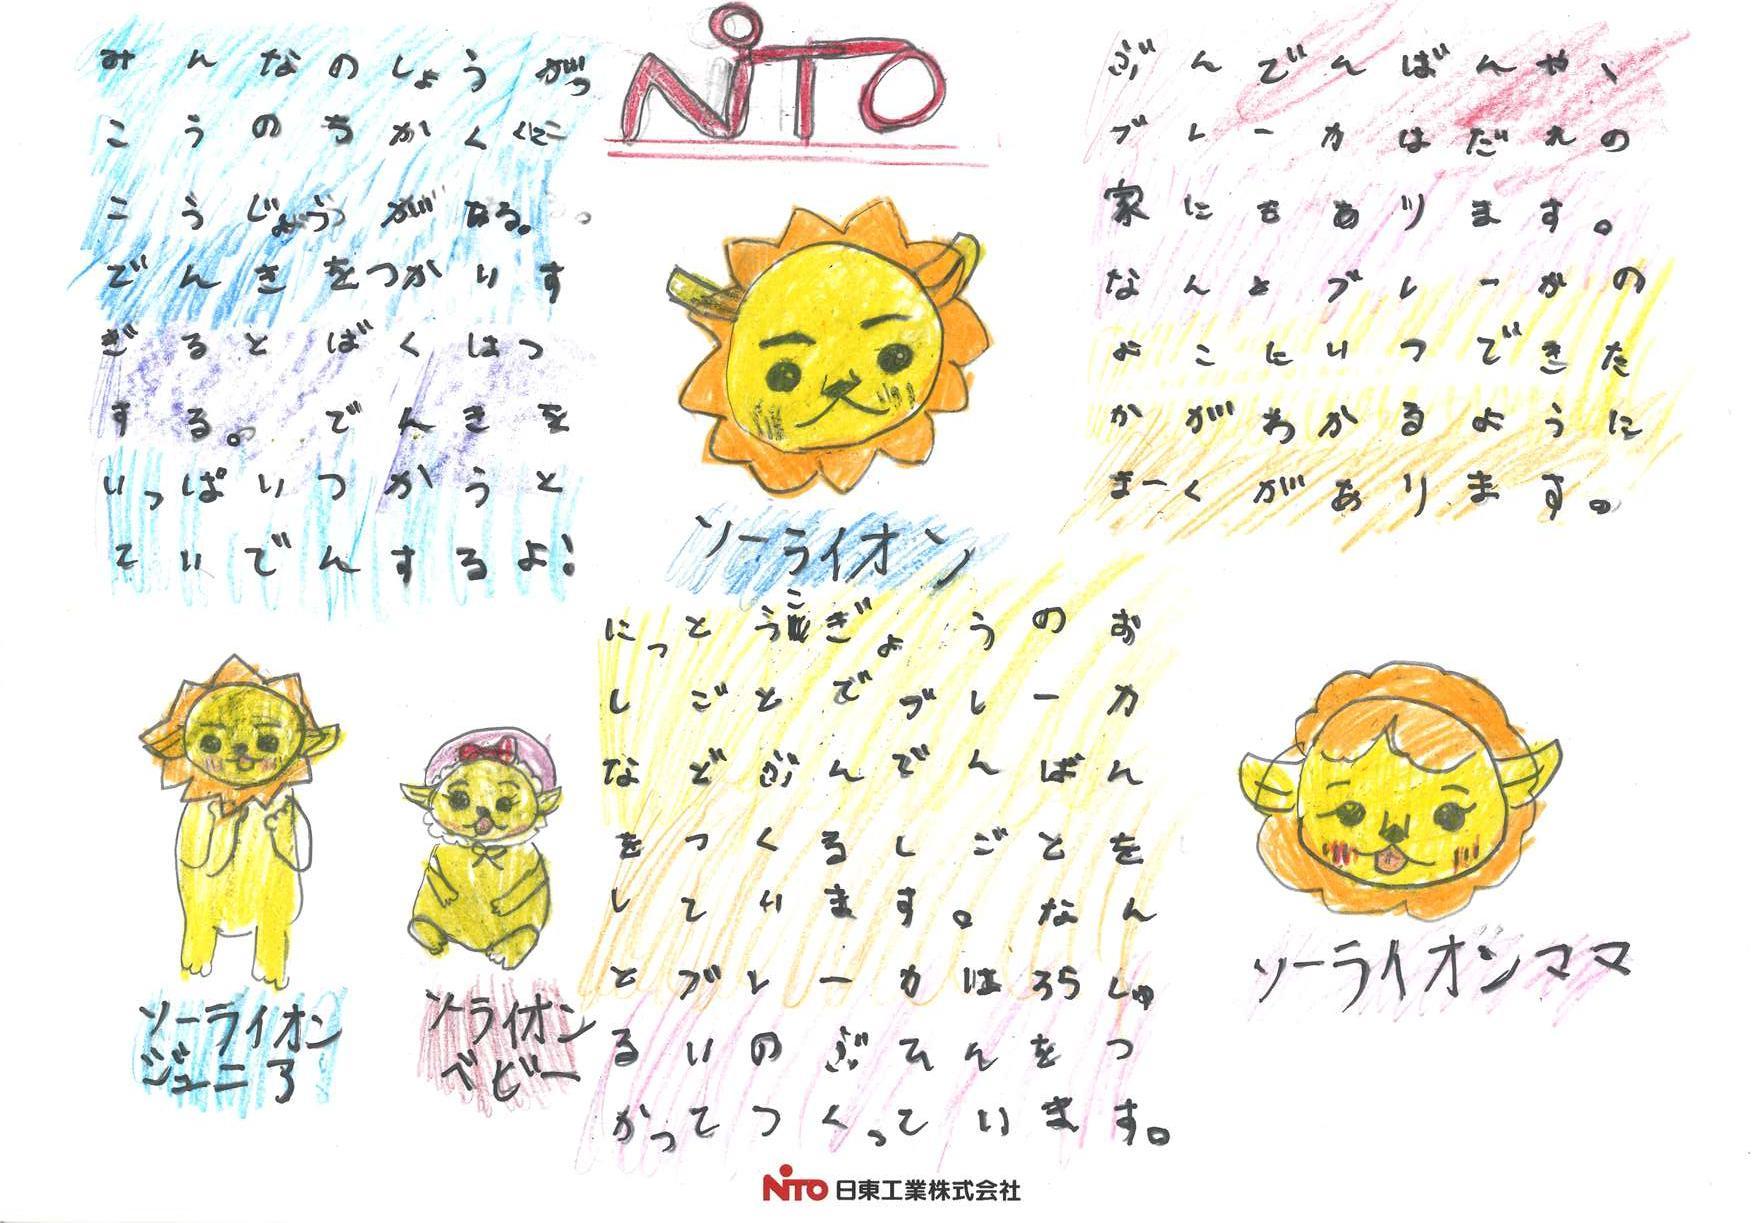 NiTO
みんなのしょうがっ
こうのちかくに
こうじょうがある。
でんきをつかりす
ぎるとばくはつ
する。でんきを
いっぱいつかうと
ていでんするよ!
ソーライオン
ぶんでんばんや、
ブレーカはだれの
家にもあります。
なんとブレーがの
よこにいつできた
かがわかるように
まーくがあります。
にっとうこぎょうのお
しごとでブレーカ
などぶんでんばん
をつくるしごとを
しています。なん
とブレーカはろらしゅ
るいのぶひんをつ
かってつくっています。
ソーライオン
ジュニア
ソライオン
ベビー
ソーライオンママ
NiTO 日東工業株式会社